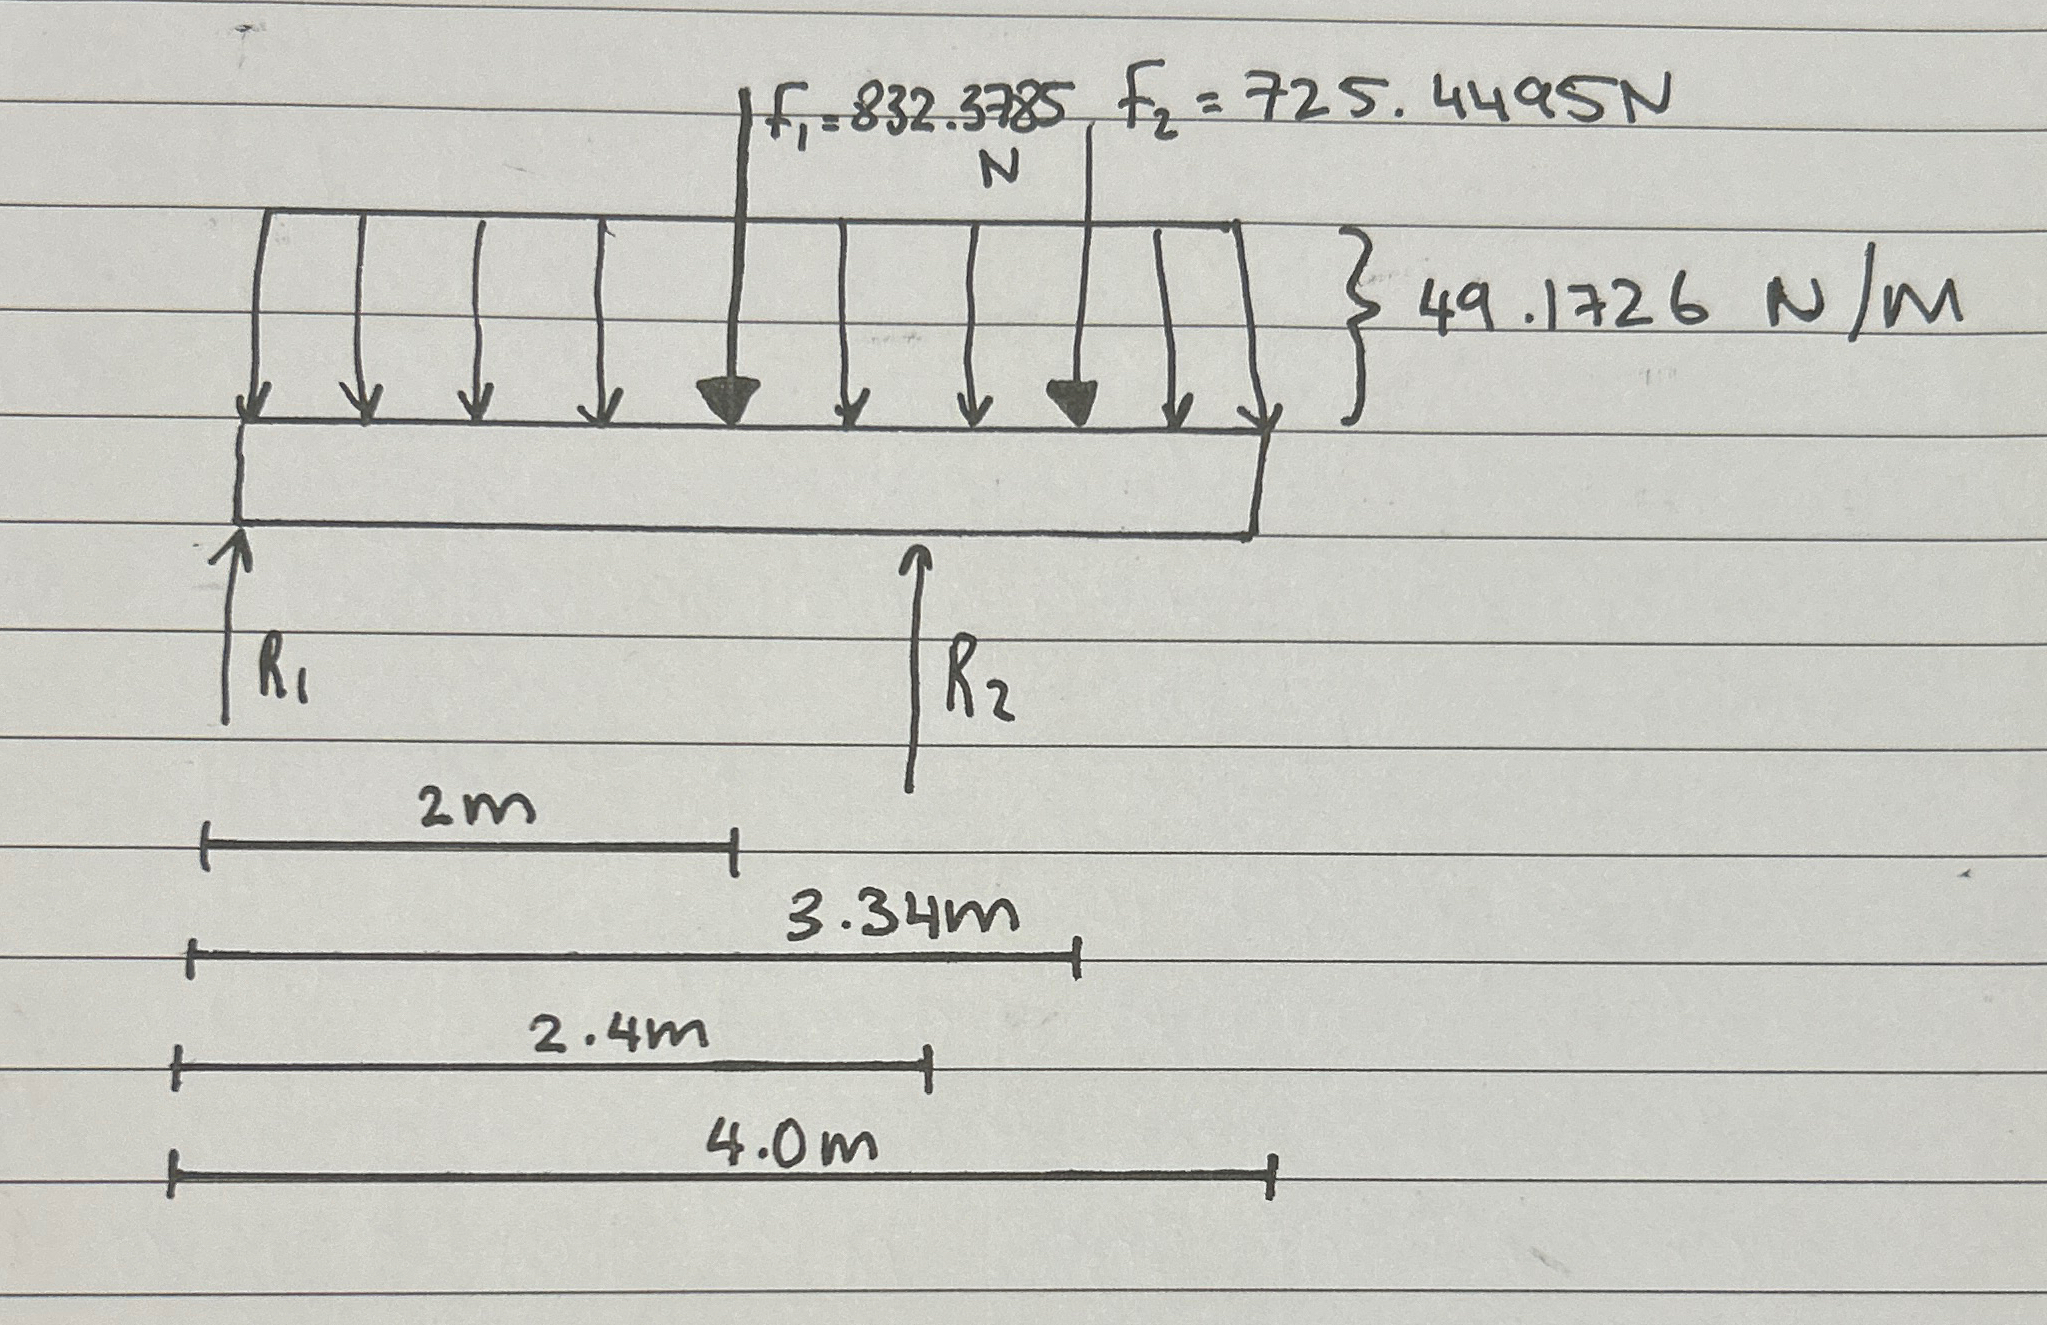 F₁ = 832.3785 N
F₂ = 725.4495N
49.1726 N/m
R₁
R₂
2m
3.34m
2.4m
4.0m